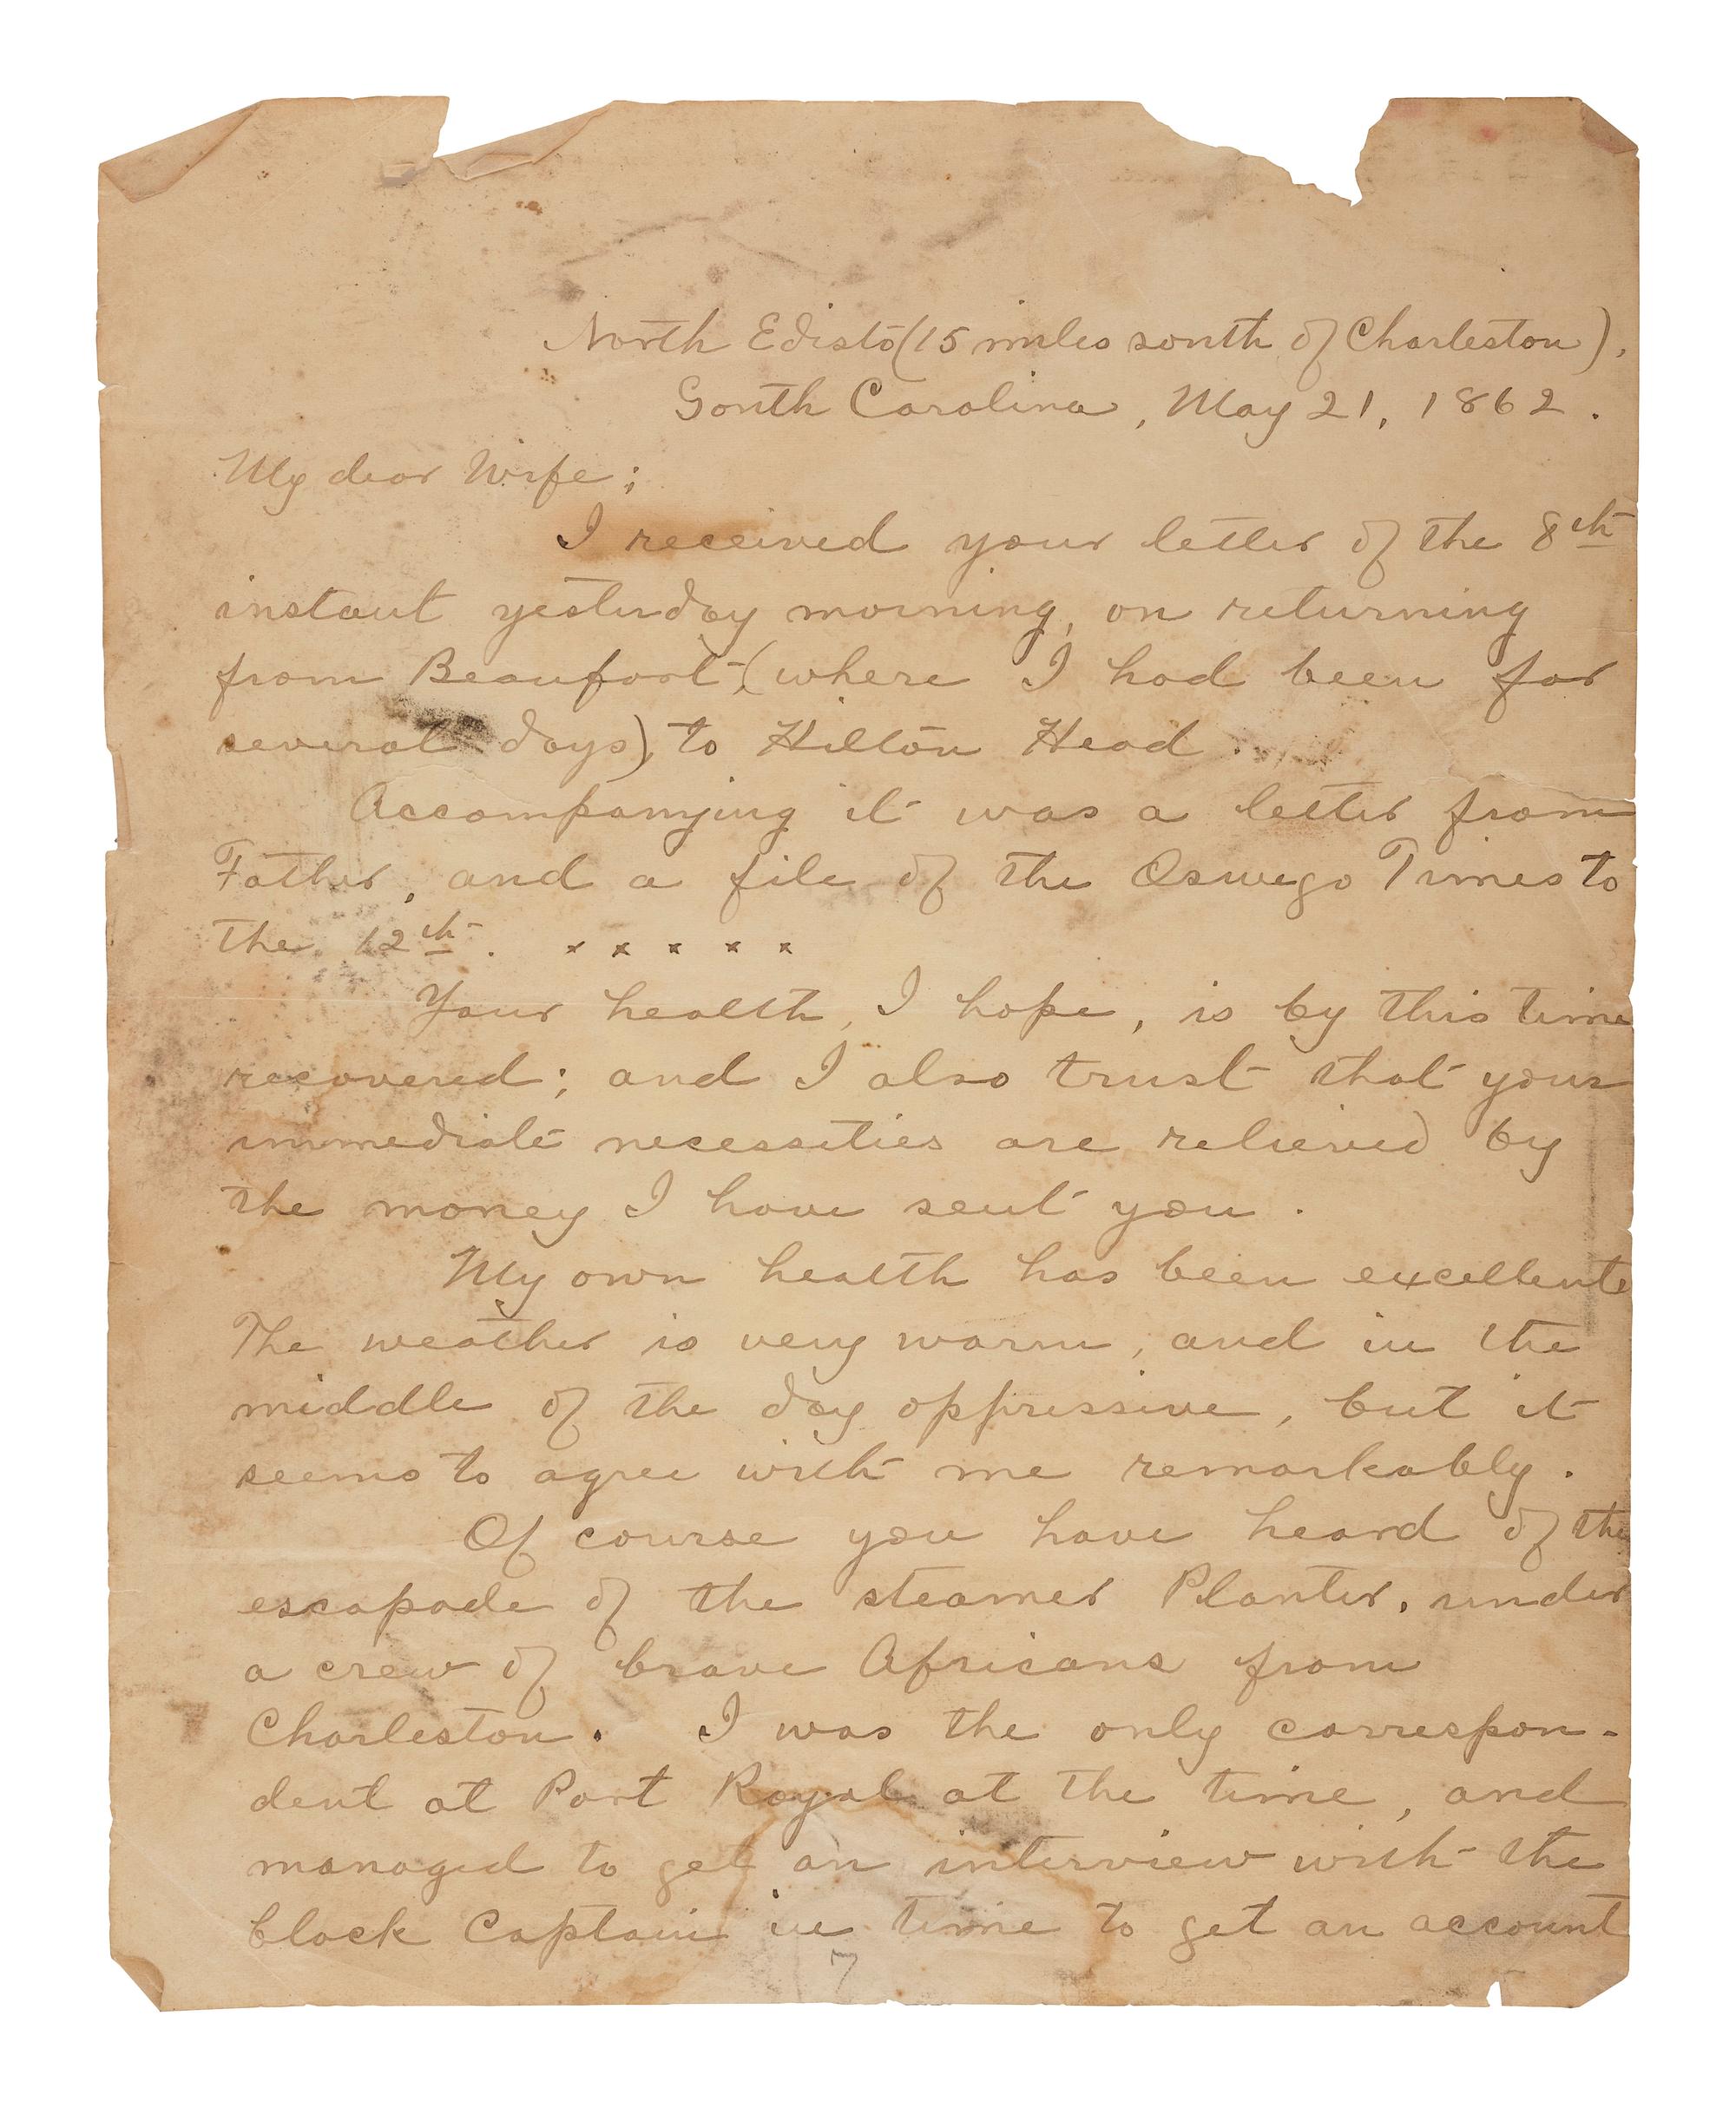 North Edisto (15 miles south of Charleston),
South Carolina, May 21, 1862.
My dear Wife;
I received your letter of the 8th
instant yesterday morning, on returning
from Beaufort, (where I had been for
several days), to Hilton Head.
Accompanying it was a letter from
Father, and a file of the Oswego Times to
the 12th. x x x x x
Your health, I hope, is by this time
recovered; and I also trust that your
immediate necessities are relieved by
the money I have sent you.
My own health has been excellent
The weather is very warm, and in the
middle of the day oppressive, but it
seems to agree with me remarkably.
Of course you have heard of the
escapade of the steamer Planter, under
a crew of brave Africans from
Charleston. I was the only correspon-
dent at Port Royal at the time, and
managed to get an interview with the
black Captain in time to get an account
7